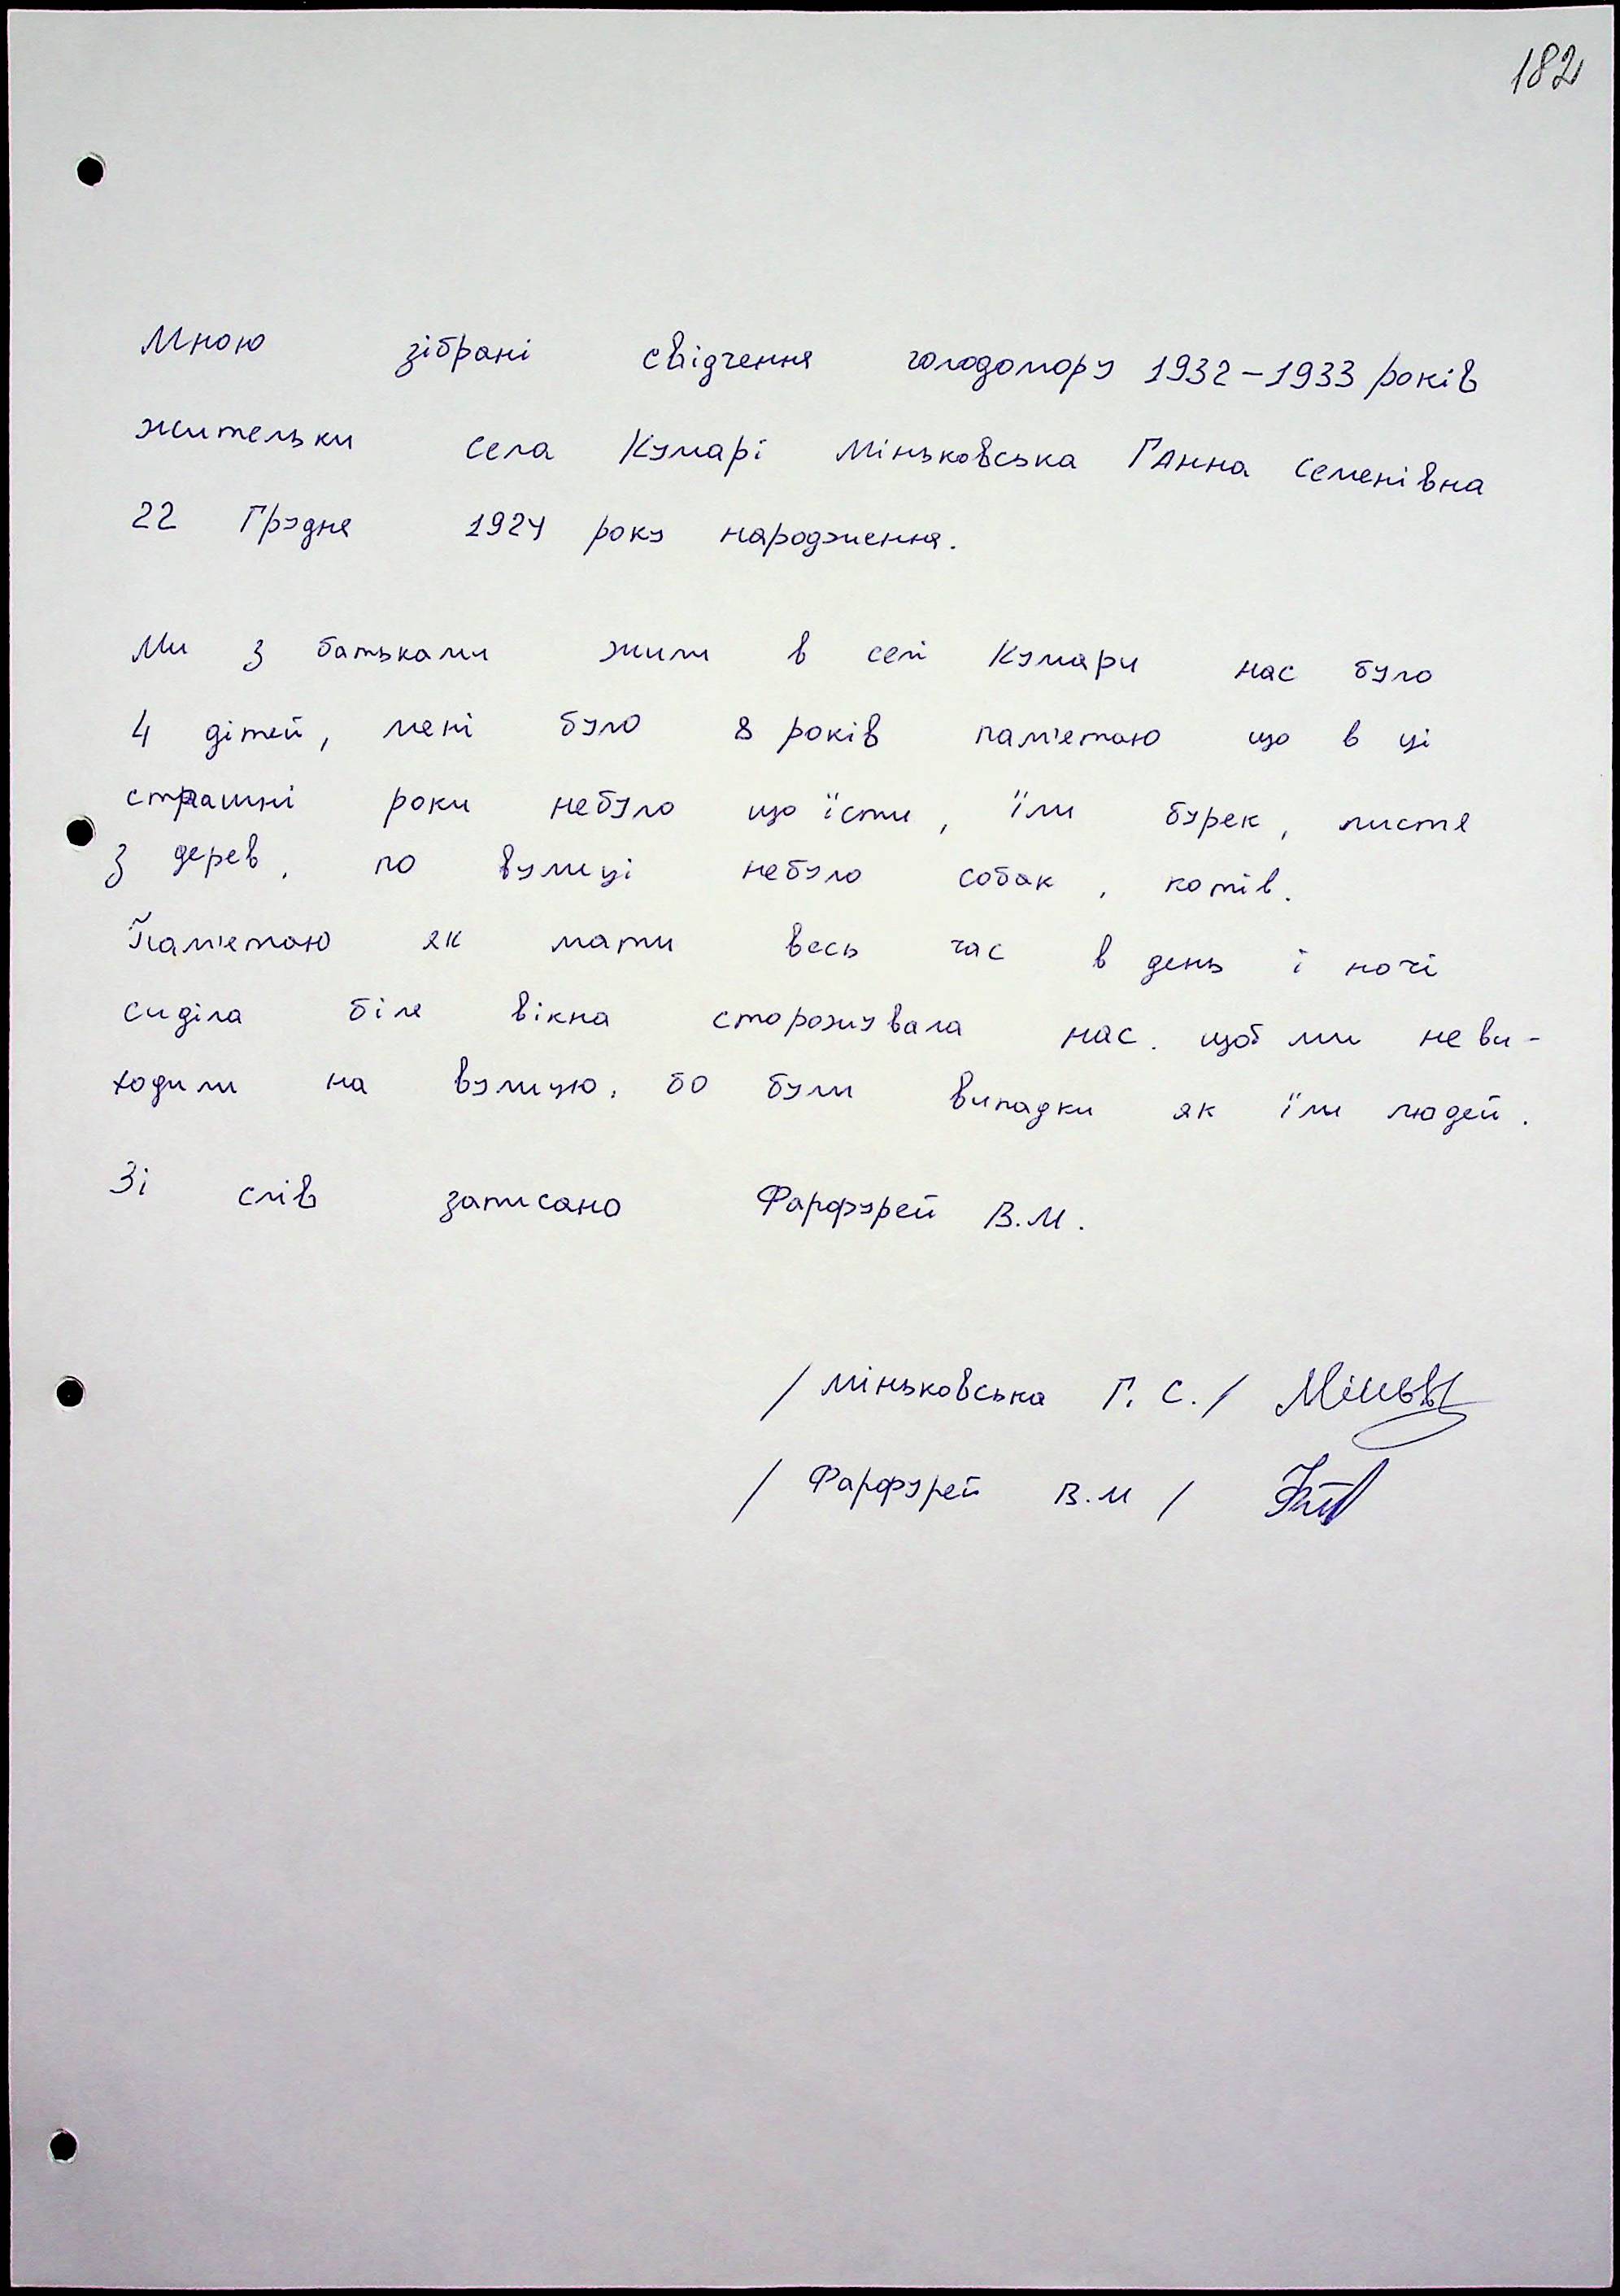 182
Мною зібрані свідчення голодомору 1932-1933 років
жительки села Кумарі Міньковська Ганна Семенівна
22 Грудня 1924 року народження.
Ми з батьками жили в селі Кумари нас було
4 дітей, мені було 8 років пам'ятаю що в ці
страшні роки небуло що їсти, їли бурек, листя
з дерев, по вулиці небуло собак, котів.
Пам'ятаю як мати весь час в день і ночі
сиділа біля вікна сторожувала нас. щоб ми не ви-
ходили на вулицю, бо були випадки як їли людей.
Зі слів записано Фарфурей В.М.
/Міньковська Г. С./
/Фарфурей В.М/